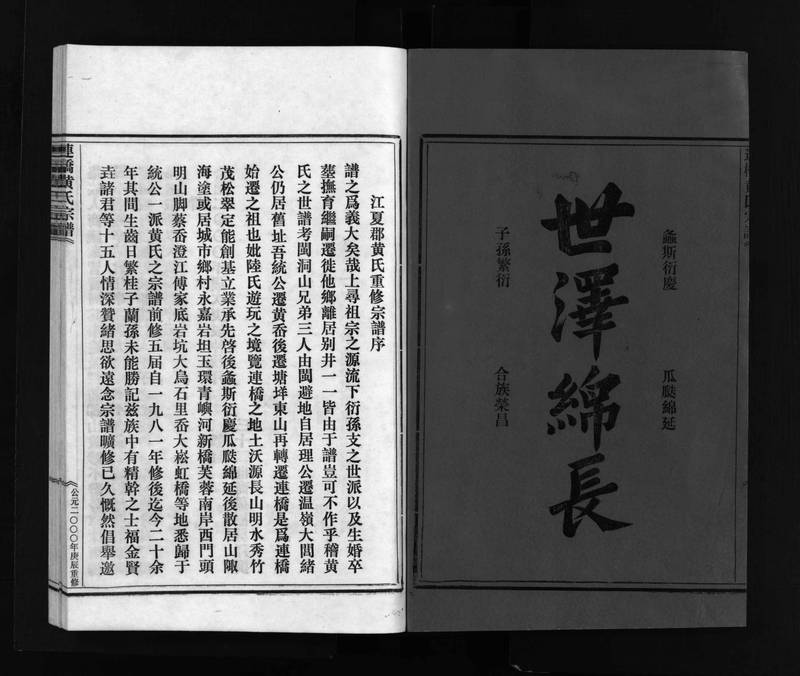 螽斯衍慶
瓜瓞綿延
世澤綿長
子孫繁衍
合族榮昌
江夏郡黄氏重修宗譜序
譜之爲義大矣哉上尋祖宗之源流下衍孫支之世派以及生婚卒
塟撫育繼嗣遷徙他鄉離居别井一一皆由于譜豈可不作乎稽黄
氏之世譜考閩洞山兄弟三人由閩避地自居理公遷温嶺大閭緒
公仍居舊址吾統公遷黄岙後遷塘垟東山再轉遷連橋是爲連橋
始遷之祖也妣陸氏遊玩之境覽連橋之地土沃源長山明水秀竹
茂松翠定能創基立業承先啓後螽斯衍慶瓜瓞綿延後散居山陬
海塗或居城市鄉村永嘉岩坦玉環青嶼河新橋芙蓉南岸西門頭
明山脚蔡岙澄江傅家底岩坑大烏石里岙大崧虹橋等地悉歸于
統公一派黄氏之宗譜前修五届自一九八一年修後迄今二十余
年其間生齒日繁桂子蘭孫未能勝記兹族中有精幹之士福金賢
垚諸君等十五人情深贊緒思欲遠念宗譜曠修已久慨然倡舉邀
連橋黄氏宗譜
公元二〇〇〇年庚辰重修